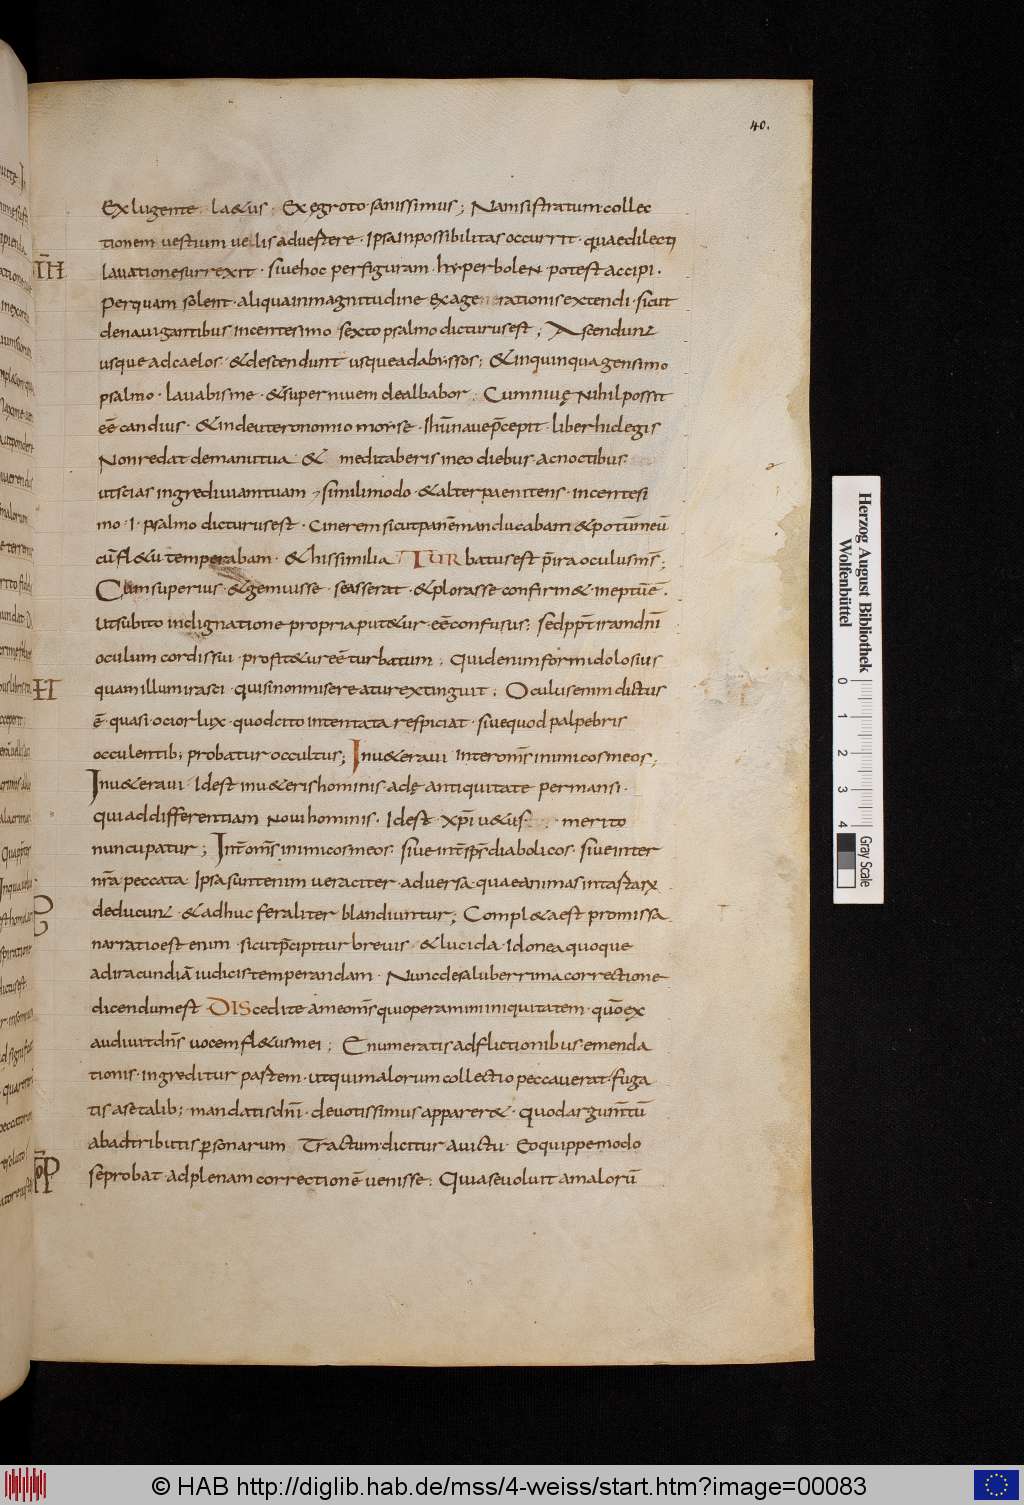 40.
Exlugente · la&us · Exęgroto · sanissimus ; Namsistratum collec
tionem uestium uellis aduertere · Ipsa inpossibilitas occurrit · quae dilecti
lauatione surrexit · siue hoc per figuram · hyperbolen potest accipi .
Perquam solent · aliqua in magnitudine exagenerationis extendi · sicut
denauigantibus incentesimo sexto psalmo dicturus est ; Ascendunt
usque adcaelos · & descendunt usque adabyssos ; & inquinquagensimo
psalmo · Lauabisme · & super niuem dealbabor ; Cum niuę nihil possit
eē candius · & in deuteronomio moyse · Ihū naue p̄cepit · liber hic legis
Non redat demanu tua & meditaberis in eo diebus · ac noctibus
ut scias ingredi uiam tuam · simili modo · & alter paenitens · incentesi
mo · I · psalmo dicturus est · Cinerem sicut panē manducabam & potum meū
cū fl&u temperabam · & his similia TURbatus est p̄ ira oculus ms̄ ;
Cum superius · & gemuisse · se asserat · & plorasse confirm& · ineptūē .
ut subito indignatione propria put&ur · eē confusus ; sed ppt̄ iram dnī
oculum cordis sui · profit&ur eē turbatum ; Quid enim formidolosius
quam illum irasci · quisi non misereatur extinguit ; Oculus enim dictus
ē · quasi ocior lux · quod cito intentata respiciat · siue quod palpebris
occulentib; probatur occultus ; Inu&eraui inter oms̄ inimicos meos ;
Inu&eraui · Id est inu&eris hominis · adę antiquitate permansi ·
qui ad differentiam noui hominis · Id est · xp̄i u&us · merito
nuncupatur ; Int̄ oms̄ inimicos meos · siue int̄ sps̄ diabolicos · siue inter
nr̄a peccata Ipsa sunt enim ueraciter · aduersa · quae animas intartarx
deducunt · & adhuc feraliter blandiuntur ; Compl&a est promissa
narratio est enim · sicut p̄cipitur breuis · & lucida · Idonea quoque
ad iracundiā iudicis temperandam · Nunc de saluberrima correctione
dicendum est · DIScedite a me oms̄ qui operamini iniquitatem · quō ex
audiuit dn̄s uocem fl&us mei ; Enumeratis adflictionibus emenda
tionis · ingreditur partem · ut qui malorum collectio peccauerat · fuga
tis a se talib; mandatis dnī · deuotissimus apparer& · Quod argum̄tū
ab adtributis personarum Tractum dicitur a uictu · Eo quippe modo
se probat · ad plenam correctionē uenisse ; Quia se uoluit a malorū
Herzog August Bibliothek
Wolfenbüttel
0 1 2 3 4
Gray Scale
© HAB http://diglib.hab.de/mss/4-weiss/start.htm?image=00083